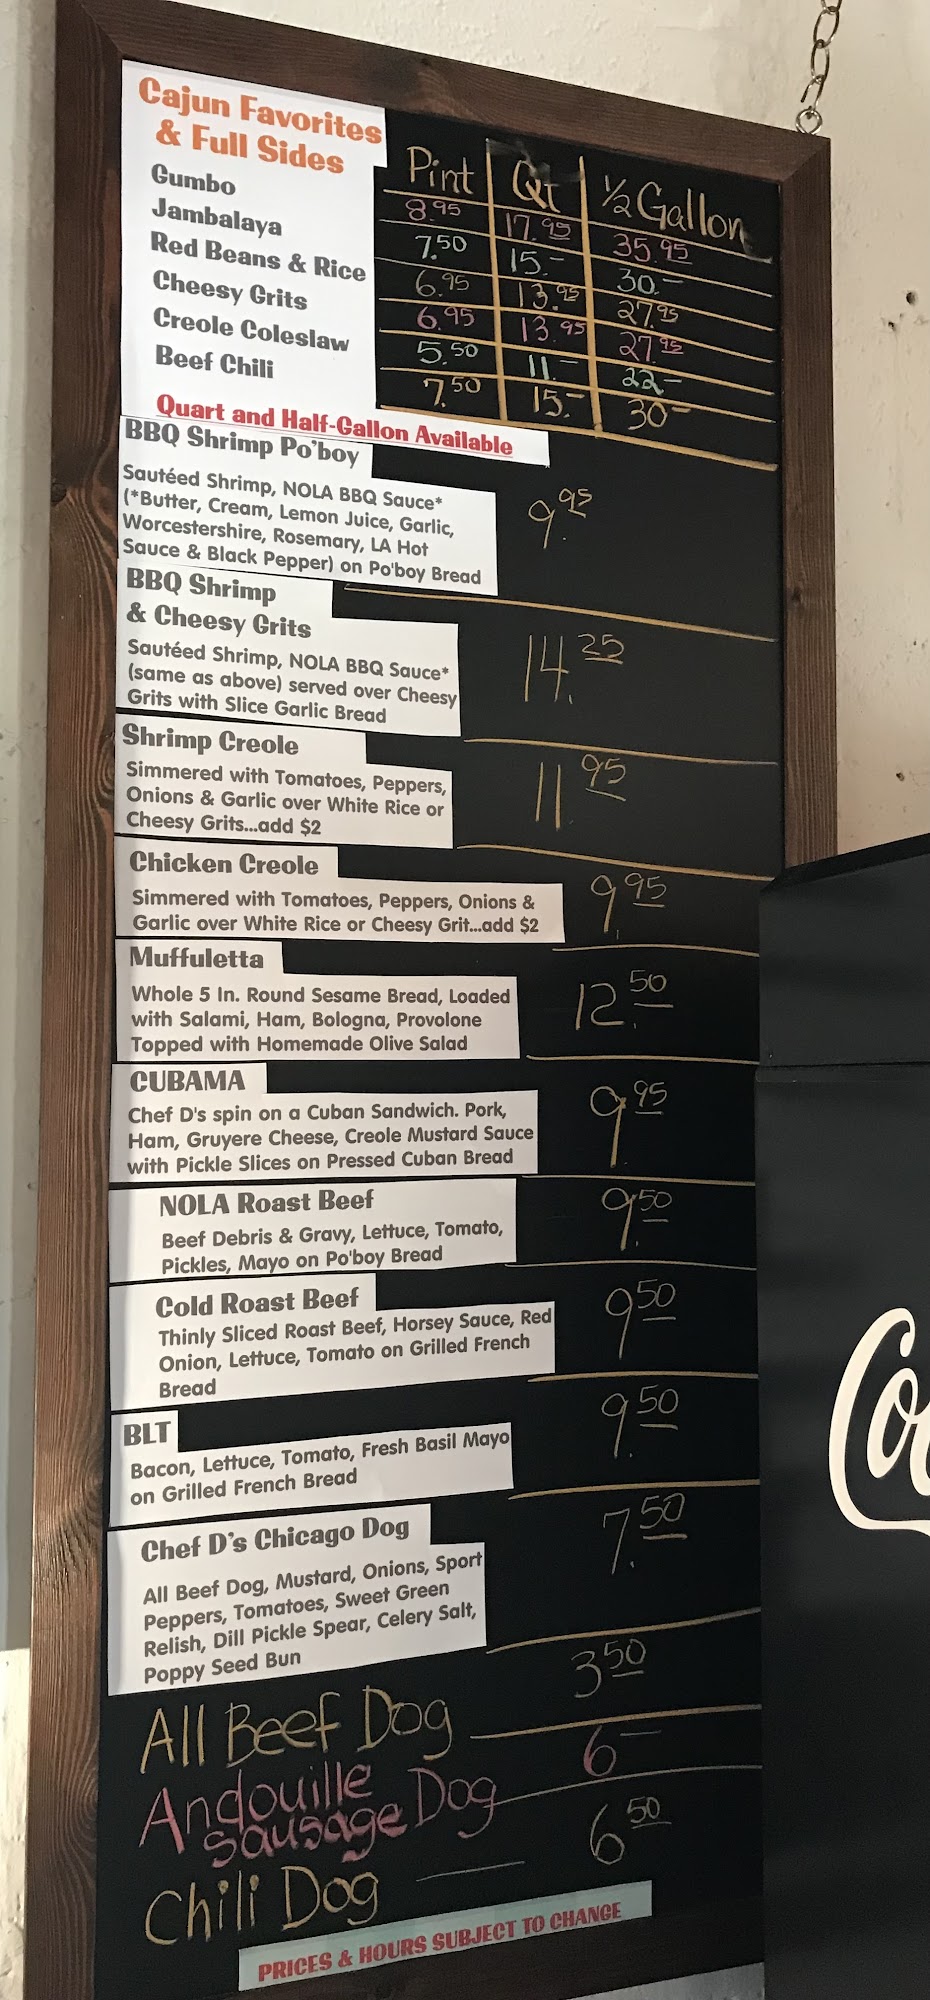 Cajun Favorites
& Full Sides
Pint Qt 1/2 Gallon
Gumbo 8.95 17.95 35.95
Jambalaya 7.50 15.- 30.-
Red Beans & Rice 6.95 13.95 27.95
Cheesy Grits 6.95 13.95 27.95
Creole Coleslaw 5.50 11.- 22-
Beef Chili 7.50 15.- 30-
Quart and Half-Gallon Available
BBQ Shrimp Po'boy
Sautéed Shrimp, NOLA BBQ Sauce*
(*Butter, Cream, Lemon Juice, Garlic,
Worcestershire, Rosemary, LA Hot
Sauce & Black Pepper) on Po'boy Bread
9.95
BBQ Shrimp
& Cheesy Grits
Sautéed Shrimp, NOLA BBQ Sauce*
(same as above) served over Cheesy
Grits with Slice Garlic Bread
14.25
Shrimp Creole
Simmered with Tomatoes, Peppers,
Onions & Garlic over White Rice or
Cheesy Grits...add $2
11.95
Chicken Creole
Simmered with Tomatoes, Peppers, Onions &
Garlic over White Rice or Cheesy Grit...add $2
9.95
Muffuletta
Whole 5 In. Round Sesame Bread, Loaded
with Salami, Ham, Bologna, Provolone
Topped with Homemade Olive Salad
12.50
CUBAMA
Chef D's spin on a Cuban Sandwich. Pork,
Ham, Gruyere Cheese, Creole Mustard Sauce
with Pickle Slices on Pressed Cuban Bread
9.95
NOLA Roast Beef
Beef Debris & Gravy, Lettuce, Tomato,
Pickles, Mayo on Po'boy Bread
9.50
Cold Roast Beef
Thinly Sliced Roast Beef, Horsey Sauce, Red
Onion, Lettuce, Tomato on Grilled French
Bread
9.50
BLT
Bacon, Lettuce, Tomato, Fresh Basil Mayo
on Grilled French Bread
9.50
Chef D's Chicago Dog
All Beef Dog, Mustard, Onions, Sport
Peppers, Tomatoes, Sweet Green
Relish, Dill Pickle Spear, Celery Salt,
Poppy Seed Bun
7.50
All Beef Dog 3.50
Andouille
Sausage Dog 6-
Chili Dog 6.50
PRICES & HOURS SUBJECT TO CHANGE